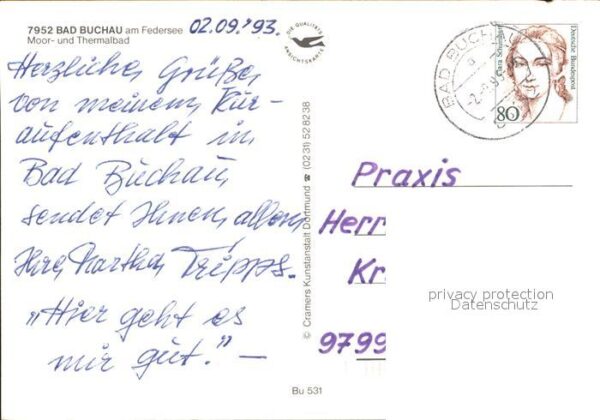 7952 BAD BUCHAU am Federsee
Moor- und Thermalbad
02.09.'93.
DIE QUALITÄTS
ANSICHTSKARTE
Herzliche Grüße
von meinem Kur-
aufenthalt in
Bad Buchau
sendet Ihnen allen
Ihre Martha Tripps.
„Hier geht es
mir gut." —
© Cramers Kunstanstalt Dortmund ☎ (0231) 528238
Bu 531
BAD BUCHAU
Clara Schumann
Deutsche Bundespost
80
Praxis
Herr
Kr
9799
privacy protection
Datenschutz